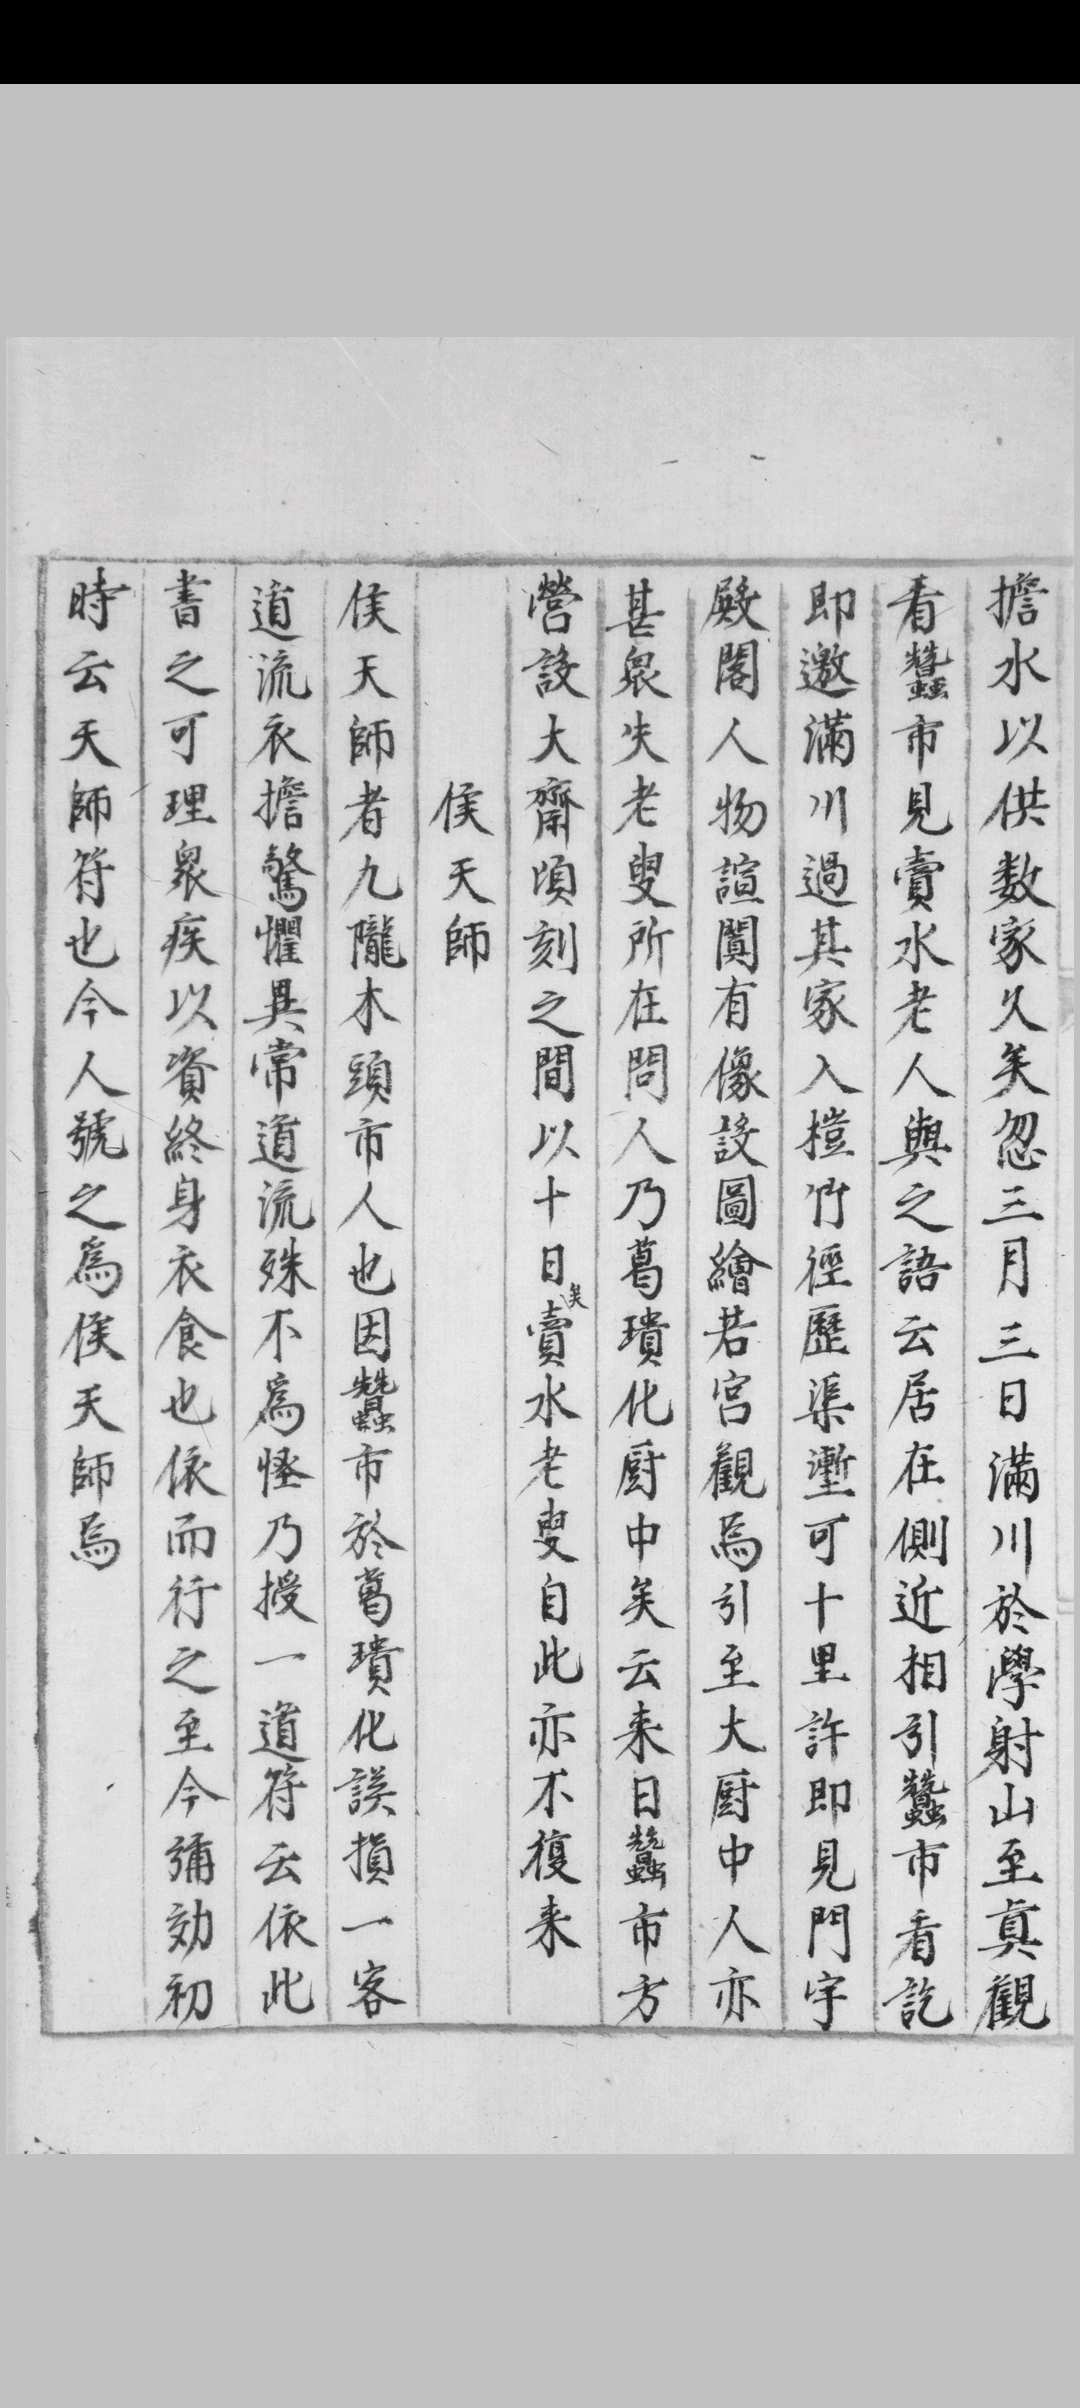 擔水以供数家久矣忽三月三日滿川於學射山至真觀
看蠶市見賣水老人與之語云居在側近相引蠶市看訖
即邀滿川過其家入榿竹徑歷渠壍可十里許即見門宇
殿閣人物諠闐有像設圖繪若宫觀焉引至大厨中人亦
甚衆失老叟所在問人乃葛璝化厨中矣云来日蠶市方
營設大齋頃刻之間以十日矣賣水老叟自此亦不復来
侯天師
侯天師者九隴木頭市人也因蠶市於葛璝化誤損一客
道流衣擔驚懼異常道流殊不為怪乃授一道符云依此
書之可理衆疾以資終身衣食也依而行之至今彌効初
時云天師符也今人號之為侯天師焉